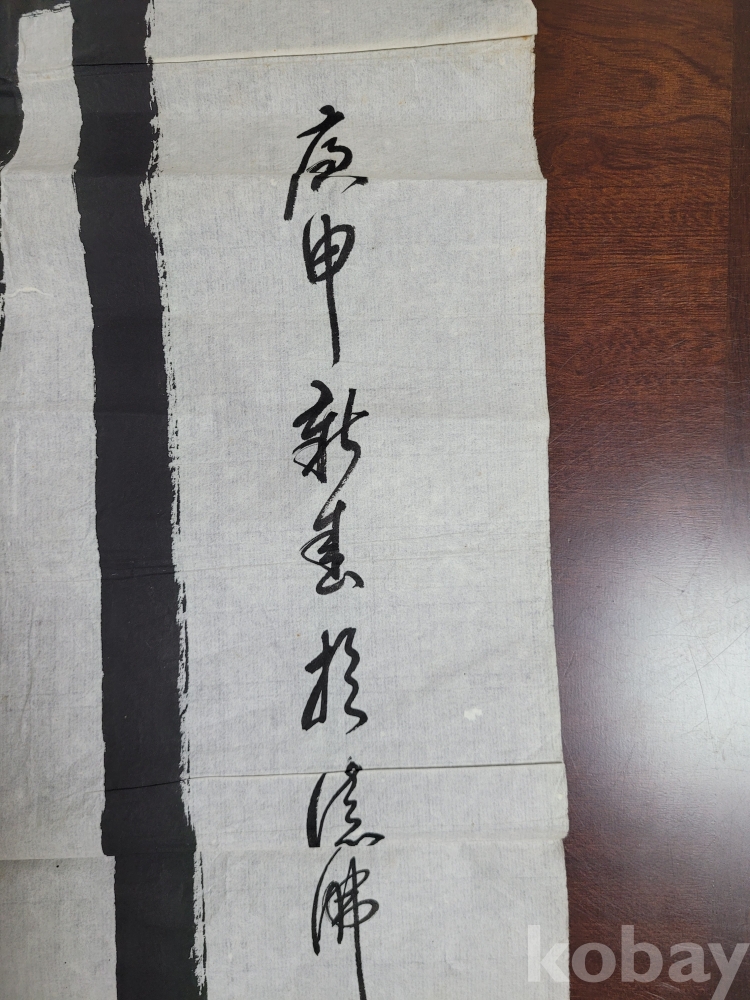 庚申新春於憶佛
kobay